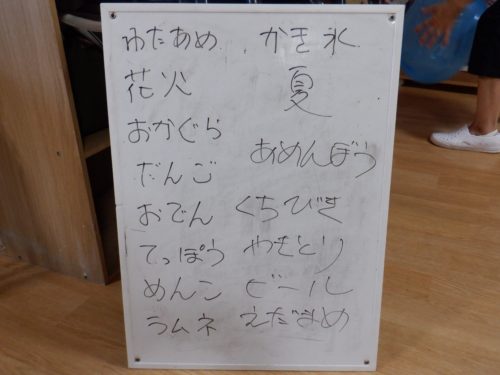 わたあめ
花火
おかぐら
だんご
おでん
てっぽう
めんこ
ラムネ
かき氷
夏
あめんぼう
くちびき
やきとり
ビール
えだまめ